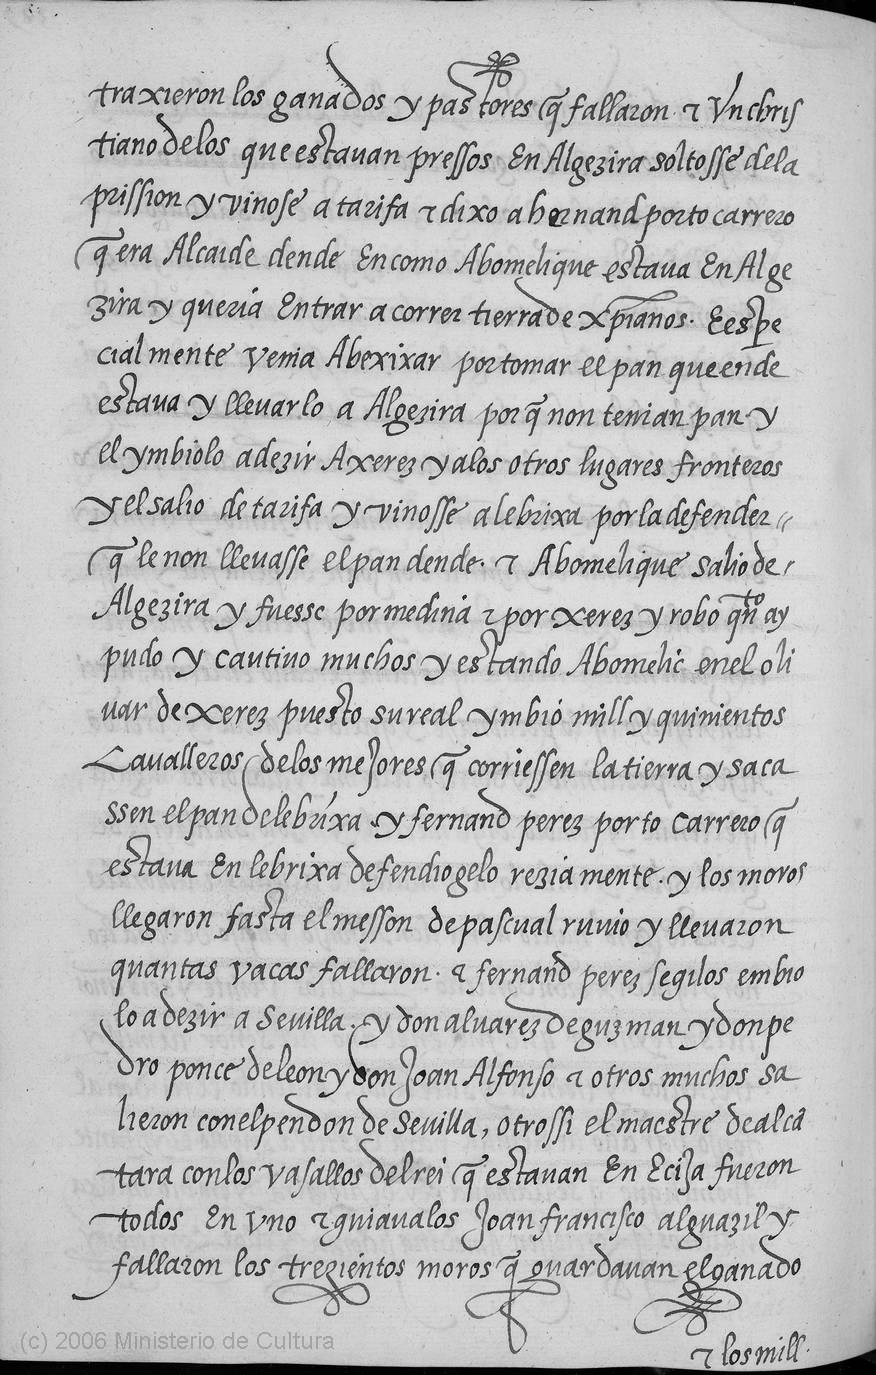 traxieron los ganados y pastores q̃ fallaron ⁊ Vn chris
tiano delos que estauan pressos En Algezira soltosse dela
prission y vinose a tarifa ⁊ dixo a hernand porto carrero
q̃ era Alcaide dende En como Abomelique estaua En Alge
zira y queria Entrar a correr tierra de xp̃ianos. E espe
cialmente venia Abexixar por tomar el pan que ende
estaua y lleuarlo a Algezira porq̃ non tenian pan. y
el ymbiolo a dezir Axerez y alos otros lugares fronteros
y el salio de tarifa y vinosse a lebrixa por la defender
q̃ le non lleuasse el pan dende. ⁊ Abomelique salio de
Algezira y fuesse por medina ⁊ por xerez y robo qñto ay
pudo y cautiuo muchos y estando Abomelic en el oli
uar de xerez puesto su real ymbió mill y quinientos
Caualleros delos meJores q̃ corriessen la tierra y saca
ssen el pan de lebrixa. y fernand perez porto carrero q̃
estaua En lebrixa defendiogelo reziamente. y los moros
llegaron fasta el messon de pascual ruuio y lleuaron
quantas vacas fallaron. ⁊ fernand perez seguilos embio
lo a dezir a Seuilla. y don aluarez de guzman y don pe
dro ponce de leon y don Joan Alfonso ⁊ otros muchos sa
lieron con el pendon de Seuilla, otrossi el maestre de alcã
tara con los vasallos del rei q̃ estauan En EciJa fueron
todos En vno ⁊ guiaualos Joan francisco alguazil y
fallaron los trezientos moros q̃ guardauan el ganado
⁊ los mill.
(c) 2006 Ministerio de Cultura